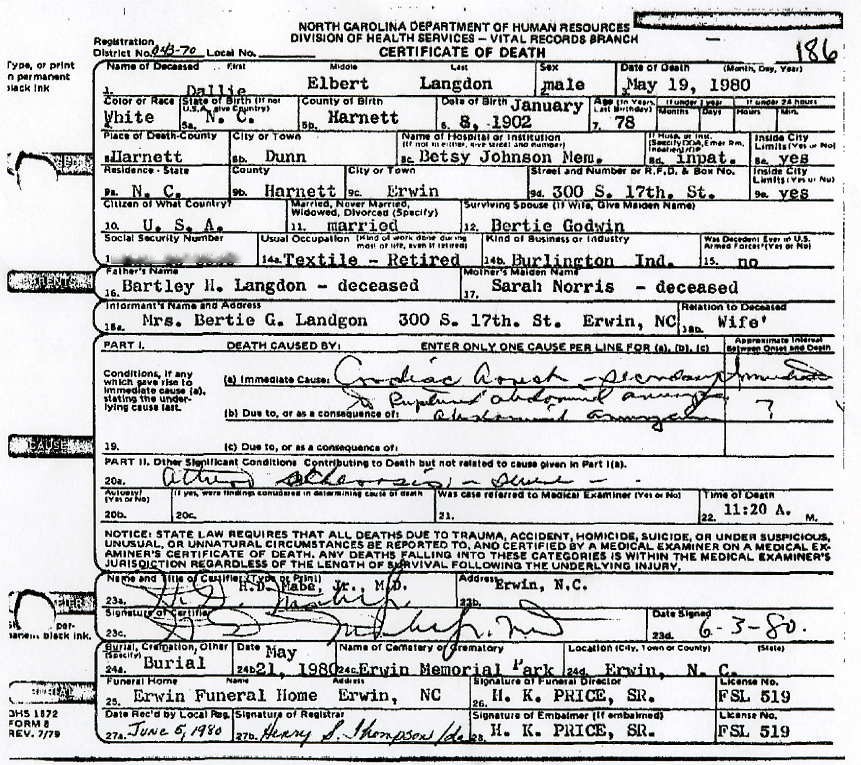 NORTH CAROLINA DEPARTMENT OF HUMAN RESOURCES
DIVISION OF HEALTH SERVICES - VITAL RECORDS BRANCH
CERTIFICATE OF DEATH
186
Registration District No. 043-70 Local No.
Type, or print
n permanent
black ink
Name of Deceased First Middle Last Sex Date of Death (Month, Day, Year)
1. Dallie Elbert Langdon 2. male 3. May 19, 1980
Color or Race State of Birth (If not U.S.A., give Country) County of Birth Date of Birth Age (In Years, Last Birthday) If under 1 year If under 24 hours
Months Days Hours Min.
4. White 5a. N. C. 5b. Harnett 6. January 8, 1902 7. 78
Place of Death-County City or Town Name of Hospital or Institution (If not in either, give street and number) If Hosp. or Inst. (Specify DOA, Emer Rm, Inpatient) Inside City Limits (Yes or No)
8a. Harnett 8b. Dunn 8c. Betsy Johnson Mem. 8d. inpat. 8e. yes
Residence - State County City or Town Street and Number or R.F.D. & Box No. Inside City Limits (Yes or No)
9a. N. C. 9b. Harnett 9c. Erwin 9d. 300 S. 17th. St. 9e. yes
Citizen of What Country? Married, Never Married, Widowed, Divorced (Specify) Surviving Spouse (If Wife, Give Maiden Name)
10. U. S. A. 11. married 12. Bertie Godwin
Social Security Number Usual Occupation (Kind of work done during most of life, even if retired) Kind of Business or Industry Was Decedent Ever in U.S. Armed Forces? (Yes or No)
14a. Textile - Retired 14b. Burlington Ind. 15. no
PARENTS
Father's Name Mother's Maiden Name
16. Bartley H. Langdon - deceased 17. Sarah Norris - deceased
Informant's Name and Address Relation to Deceased
18a. Mrs. Bertie G. Landgon 300 S. 17th. St. Erwin, NC 18b. Wife'
PART I. DEATH CAUSED BY: ENTER ONLY ONE CAUSE PER LINE FOR (a), (b), (c) Approximate Interval Between Onset and Death
Conditions, if any
which gave rise to
immediate cause (a),
stating the under-
lying cause last.
(a) Immediate Cause: Cardiac Arrest - secondary
to Ruptured abdominal
(b) Due to, or as a consequence of: abdominal ?
CAUSE
19. (c) Due to, or as a consequence of:
PART II. Other Significant Conditions Contributing to Death but not related to cause given in Part I(a).
20a. - severe -
Autopsy? (Yes or No) If yes, were findings considered in determining cause of death Was case referred to Medical Examiner (Yes or No) Time of Death
20b. 20c. 21. 22. 11:20 A. M.
NOTICE: STATE LAW REQUIRES THAT ALL DEATHS DUE TO TRAUMA, ACCIDENT, HOMICIDE, SUICIDE, OR UNDER SUSPICIOUS,
UNUSUAL, OR UNNATURAL CIRCUMSTANCES BE REPORTED TO, AND CERTIFIED BY A MEDICAL EXAMINER ON A MEDICAL EX-
AMINER'S CERTIFICATE OF DEATH. ANY DEATHS FALLING INTO THESE CATEGORIES IS WITHIN THE MEDICAL EXAMINER'S
JURISDICTION REGARDLESS OF THE LENGTH OF SURVIVAL FOLLOWING THE UNDERLYING INJURY.
Name and Title of Certifier (Type or Print) Address
23a. H.D. Mabe, Jr., M.D. 23b. Erwin, N.C.
Signature of Certifier Date Signed
23c. 23d. 6-3-80.
per-
manent black ink.
Burial, Cremation, Other (Specify) Date Name of Cemetery or Crematory Location (City, Town or County) (State)
24a. Burial 24b. May 21, 1980 24c. Erwin Memorial Park 24d. Erwin, N. C.
Funeral Home Name Address Signature of Funeral Director License No.
25. Erwin Funeral Home Erwin, NC 26. H. K. PRICE, SR. FSL 519
BURIAL
DHS 1872
FORM 8
REV. 7/79
Date Rec'd by Local Reg. Signature of Registrar Signature of Embalmer (If embalmed) License No.
27a. June 5, 1980 27b. Henry S. Thompson 28. H. K. PRICE, SR. FSL 519